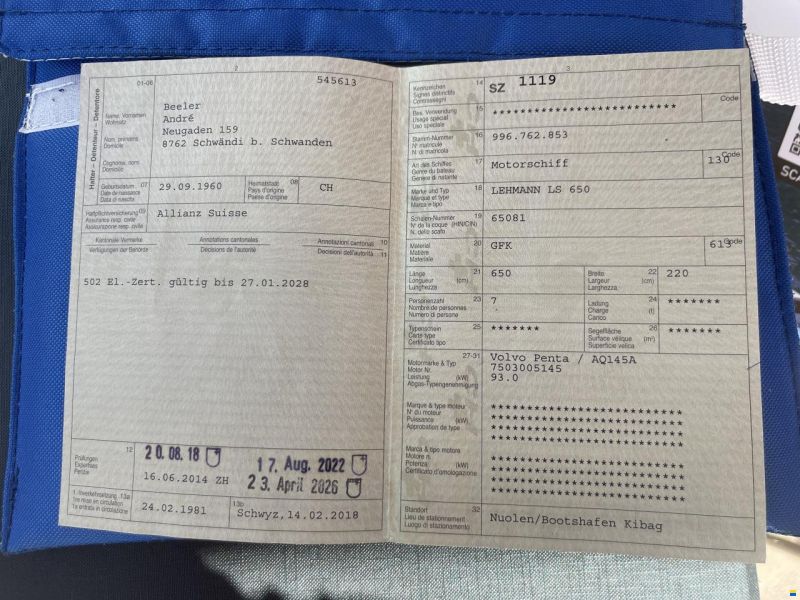 2
01-06
545613
Halter – Détenteur – Detentore
Name, Vornamen
Wohnsitz
Nom, prénoms
Domicile
Cognome, nomi
Domicilio
Beeler
André
Neugaden 159
8762 Schwändi b. Schwanden
Geburtsdatum 07
Date de naissance
Data di nascita
29.09.1960
Heimatstaat 08
Pays d'origine
Paese d'origine
CH
Haftpflichtversicherung 09
Assurance resp. civile
Assicurazione resp. civile
Allianz Suisse
Kantonale Vermerke Annotations cantonales Annotazioni cantonali 10
Verfügungen der Behörde Décisions de l'autorité Decisioni dell'autorità 11
502 El.-Zert. gültig bis 27.01.2028
12
Prüfungen
Expertises
Perizie
20.08.18
17. Aug. 2022
16.06.2014 ZH
23. April 2026
1. Inverkehrsetzung 13a
1re mise en circulation
1a entrata in circolazione
24.02.1981
13b
Schwyz, 14.02.2018
3
Kennzeichen 14
Signes distinctifs
Contrassegni
SZ 1119
Bes. Verwendung 15
Usage spécial
Uso speciale
***************************
Code
Stamm-Nummer 16
N° matricule
N. di matricola
996.762.853
Art des Schiffes 17
Genre du bateau
Genere di natante
Motorschiff
Code
130
Marke und Typ 18
Marque et type
Marca e tipo
LEHMANN LS 650
Schalen-Nummer 19
N° de la coque (HIN/CIN)
N. dello scafo
65081
Material 20
Matière
Materiale
GFK
Code
613
Länge 21
Longueur (cm)
Lunghezza
650
Breite 22
Largeur (cm)
Larghezza
220
Personenzahl 23
Nombre de personnes
Numero di persone
7
Ladung 24
Charge (t)
Carico
*******
Typenschein 25
Carte type
Certificato tipo
*******
Segelfläche 26
Surface vélique (m²)
Superficie velica
*******
27-31
Motormarke & Typ
Motor Nr.
Leistung (kW)
Abgas-Typengenehmigung
Volvo Penta / AQ145A
7503005145
93.0
Marque & type moteur
N° du moteur
Puissance (kW)
Approbation de type
****************************
****************************
****************************
****************************
Marca & tipo motore
Motore n.
Potenza (kW)
Certificato d'omologazione
****************************
****************************
****************************
****************************
Standort 32
Lieu de stationnement
Luogo di stazionamento
Nuolen/Bootshafen Kibag
SCA